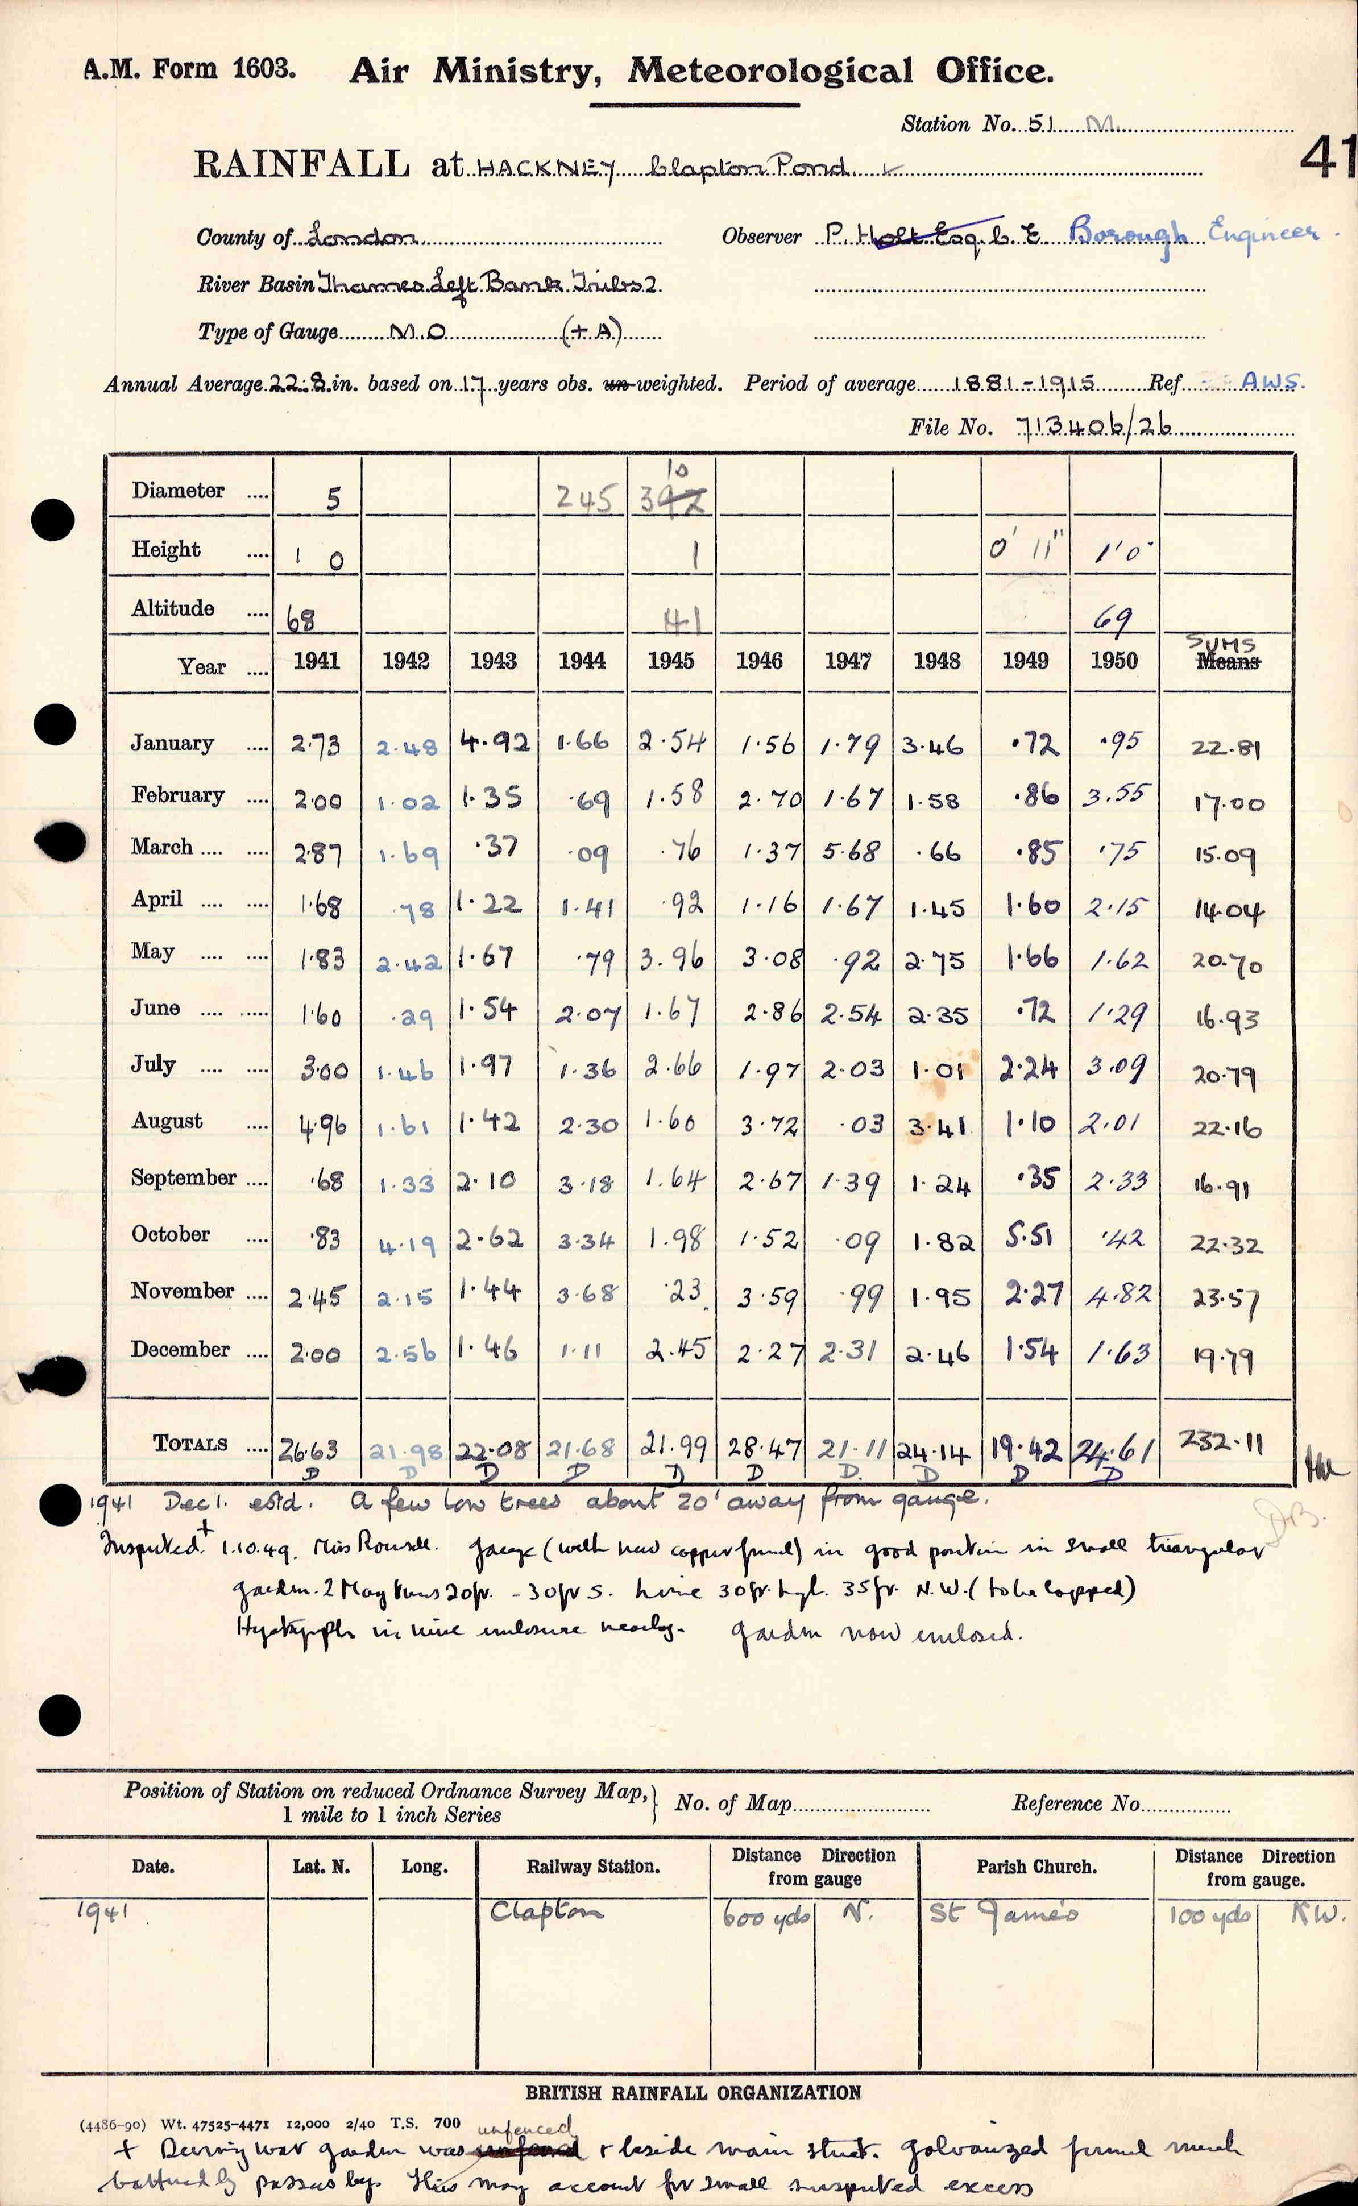 A.M. Form 1603. Air Ministry, Meteorological Office.
Station No. 51 M.
41
RAINFALL at HACKNEY Clapton Pond. ✓
County of London Observer P. Holt Esq. C. E. Borough Engineer.
River Basin Thames Left Bank Tribs 2.
Type of Gauge M.O (+A)
Annual Average 22.8 in. based on 17 years obs. un-weighted. Period of average 1881-1915 Ref AWS.
File No. 713406/26
Diameter .... 5 245 392 10
Height .... 1 0 1 0' 11" 1'0"
Altitude .... 68 41 69
Year .... 1941 1942 1943 1944 1945 1946 1947 1948 1949 1950 Means SUMS
January .... 2.73 2.48 4.92 1.66 2.54 1.56 1.79 3.46 .72 .95 22.81
February .... 2.00 1.02 1.35 .69 1.58 2.70 1.67 1.58 .86 3.55 17.00
March .... .... 2.87 1.69 .37 .09 .76 1.37 5.68 .66 .85 .75 15.09
April .... .... 1.68 .78 1.22 1.41 .92 1.16 1.67 1.45 1.60 2.15 14.04
May .... .... 1.83 2.42 1.67 .79 3.96 3.08 .92 2.75 1.66 1.62 20.70
June .... .... 1.60 .29 1.54 2.07 1.67 2.86 2.54 2.35 .72 1.29 16.93
July .... .... 3.00 1.46 1.97 1.36 2.66 1.97 2.03 1.01 2.24 3.09 20.79
August .... 4.96 1.61 1.42 2.30 1.60 3.72 .03 3.41 1.10 2.01 22.16
September .... .68 1.33 2.10 3.18 1.64 2.67 1.39 1.24 .35 2.33 16.91
October .... .83 4.19 2.62 3.34 1.98 1.52 .09 1.82 5.51 .42 22.32
November .... 2.45 2.15 1.44 3.68 .23 3.59 .99 1.95 2.27 4.82 23.57
December .... 2.00 2.56 1.46 1.11 2.45 2.27 2.31 2.46 1.54 1.63 19.79
TOTALS .... 26.63 21.98 22.08 21.68 21.99 28.47 21.11 24.14 19.42 24.61 232.11
D D D D D D D. D D D
1941 Dec 1. estd. A few low trees about 20' away from gauge.
D.B.
Inspected + 1.10.49. Miss Gauge (with new copper funnel) in good position in small triangular
garden. 2 May trees 20ft. - 30ft S. 30ft. high 35ft. N.W. (to be lopped)
in enclosure nearby. Garden now enclosed.
Position of Station on reduced Ordnance Survey Map, } No. of Map Reference No.
1 mile to 1 inch Series
Date. Lat. N. Long. Railway Station. Distance Direction from gauge Parish Church. Distance Direction from gauge.
1941 Clapton 600 yds N. St James 100 yds NW.
BRITISH RAINFALL ORGANIZATION
(4486-90) Wt. 47525-4471 12,000 2/40 T.S. 700
unfenced
+ During war garden was & beside main street. Galvanized funnel much
battered by passers by. This may account for small suspected excess